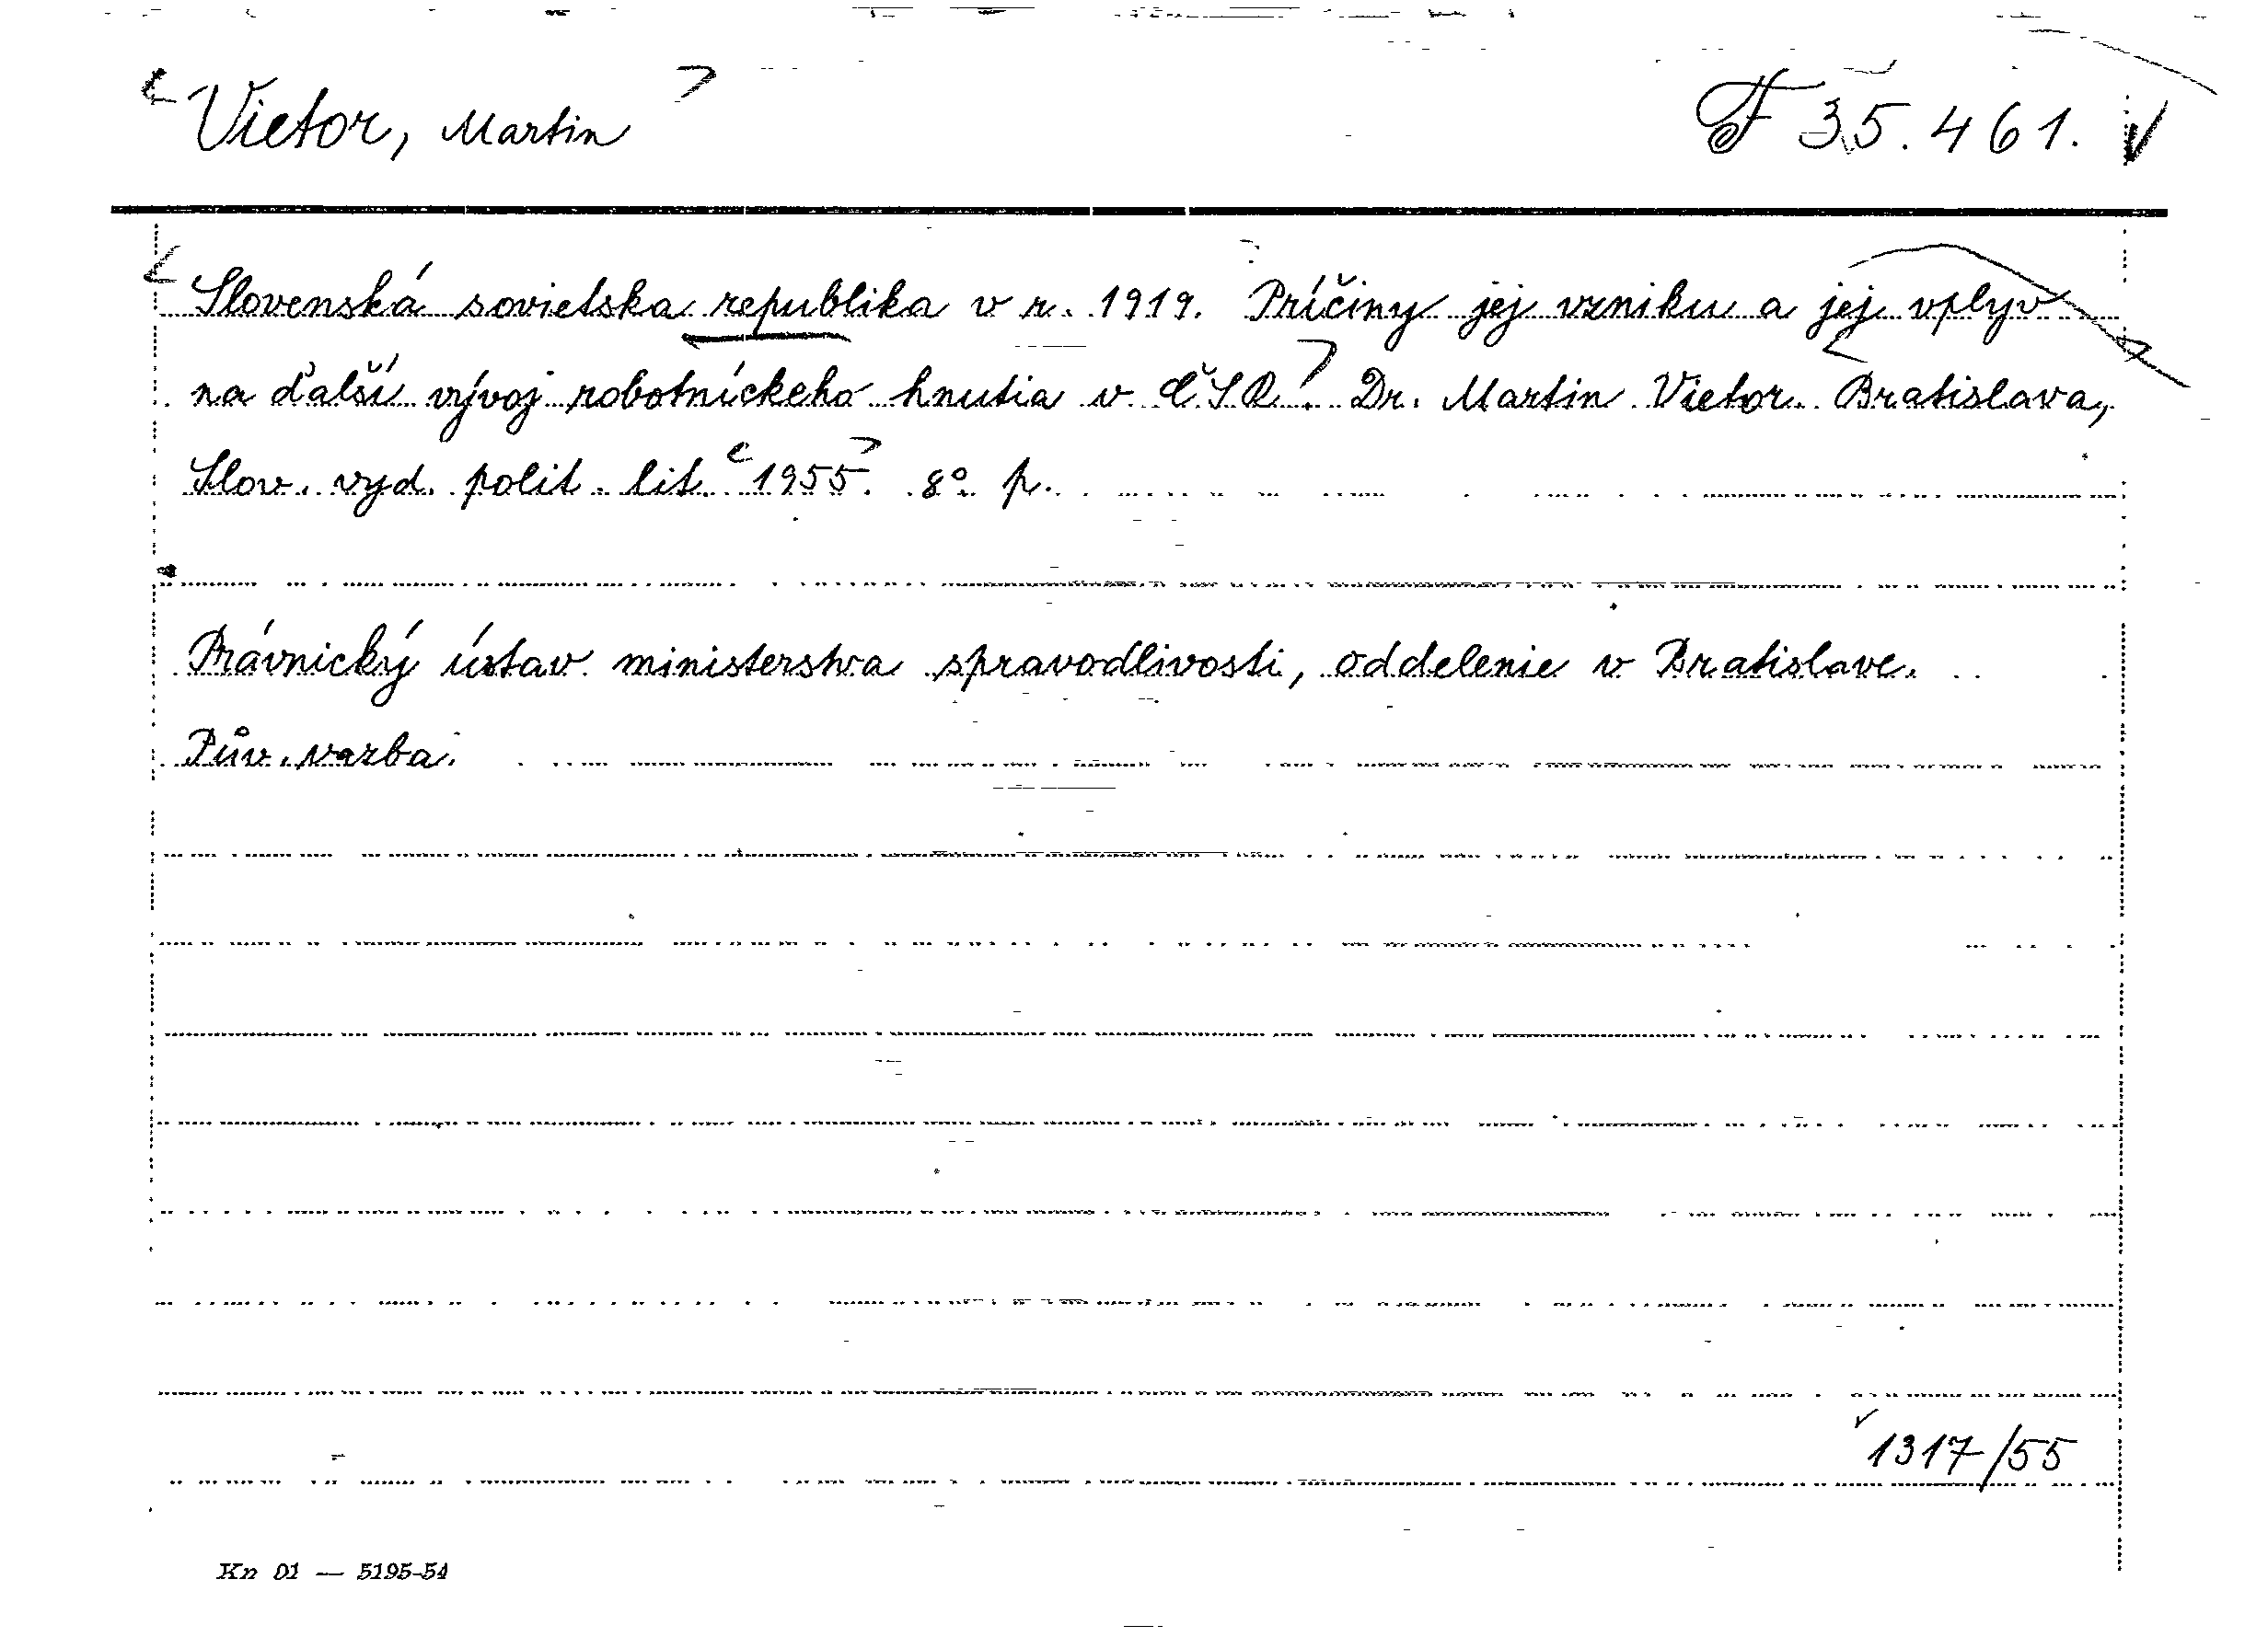 Vietor, Martin F 35.461.
Slovenská sovietska republika v r. 1919. Príčiny jej vzniku a jej vplyv
na ďalší vývoj robotníckeho hnutia v ČSR. Dr. Martin Vietor. Bratislava,
Slov. vyd. polit. lit. 1955. 8° p.
Právnický ústav ministerstva spravodlivosti, oddelenie v Bratislave.
Pův. vazba.
1317/55
Kn 01 — 5195-54